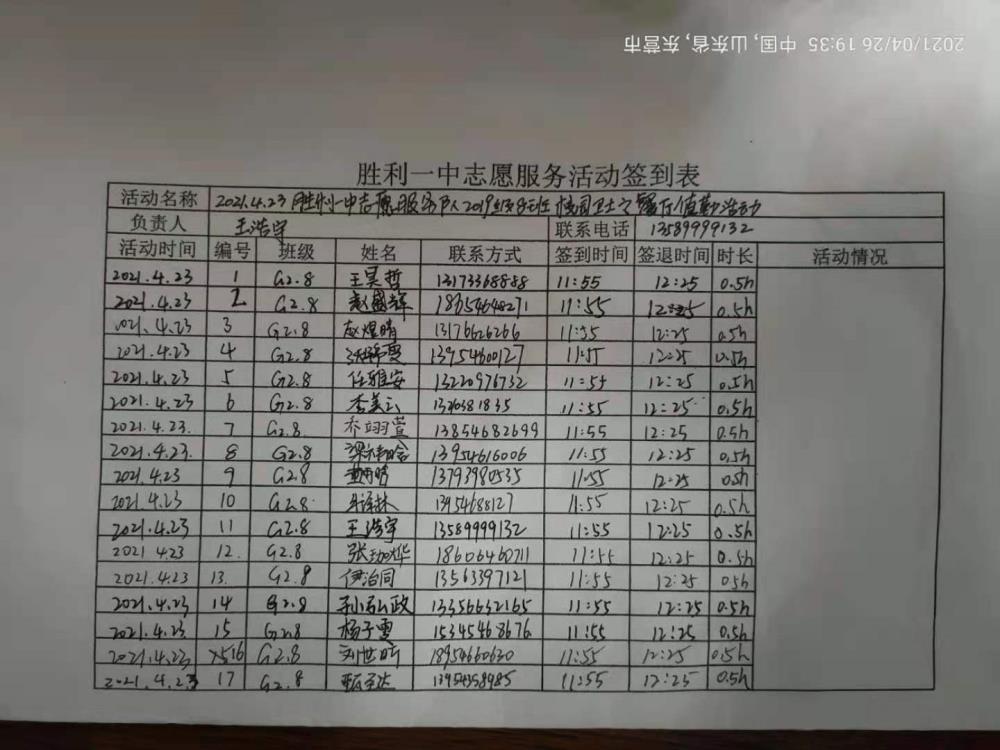 2021/04/26 19:35 中国,山东省,东营市
胜利一中志愿服务活动签到表
活动名称 2021.4.23胜利一中志愿服务队2019级8班校园卫士之餐厅值勤活动
负责人 王浩宇 联系电话 13589999132
活动时间 编号 班级 姓名 联系方式 签到时间 签退时间 时长 活动情况
2021.4.23 1 G2.8 王昊哲 13173368888 11:55 12:25 0.5h
2021.4.23 2 G2.8 赵盛辉 18654648271 11:55 12:25 0.5h
2021.4.23 3 G2.8 赵煜晴 13176626266 11:55 12:25 0.5h
2021.4.23 4 G2.8 13954600127 11:55 12:25 0.5h
2021.4.23 5 G2.8 任雅安 13220976732 11:55 12:25 0.5h
2021.4.23 6 G2.8 李美云 11:55 12:25 0.5h
2021.4.23. 7 G2.8. 乔翊萱 13854682699 11:55 12:25 0.5h
2021.4.23. 8 G2.8 13954616006 11:55 12:25 0.5h
2021.4.23 9 G2.8 13793980535 11:55 12:25 0.5h
2021.4.23 10 G2.8 13954688127 11:55 12:25 0.5h
2021.4.23 11 G2.8 王浩宇 13589999132 11:55 12:25 0.5h
2021.4.23 12. G2.8 18606460711 11:55 12:25 0.5h
2021.4.23 13. G2.8 伊治同 13563397121 11:55 12:25 0.5h
2021.4.23 14 G2.8 孙弘政 13356632165 11:55 12:25 0.5h
2021.4.23 15 G2.8 杨子雯 15345468676 11:55 12:25 0.5h
2021.4.23 16 G2.8 刘世昕 18954660630 11:55 12:25 0.5h
2021.4.23 17 G2.8 13954358985 11:55 12:25 0.5h